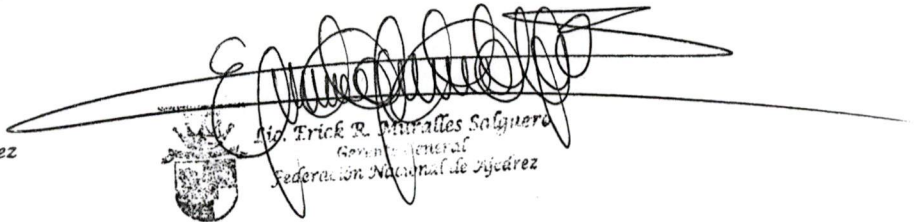 Lic. Erick R. Muralles Salguero
Gerente General
Federación Nacional de Ajedrez
ez